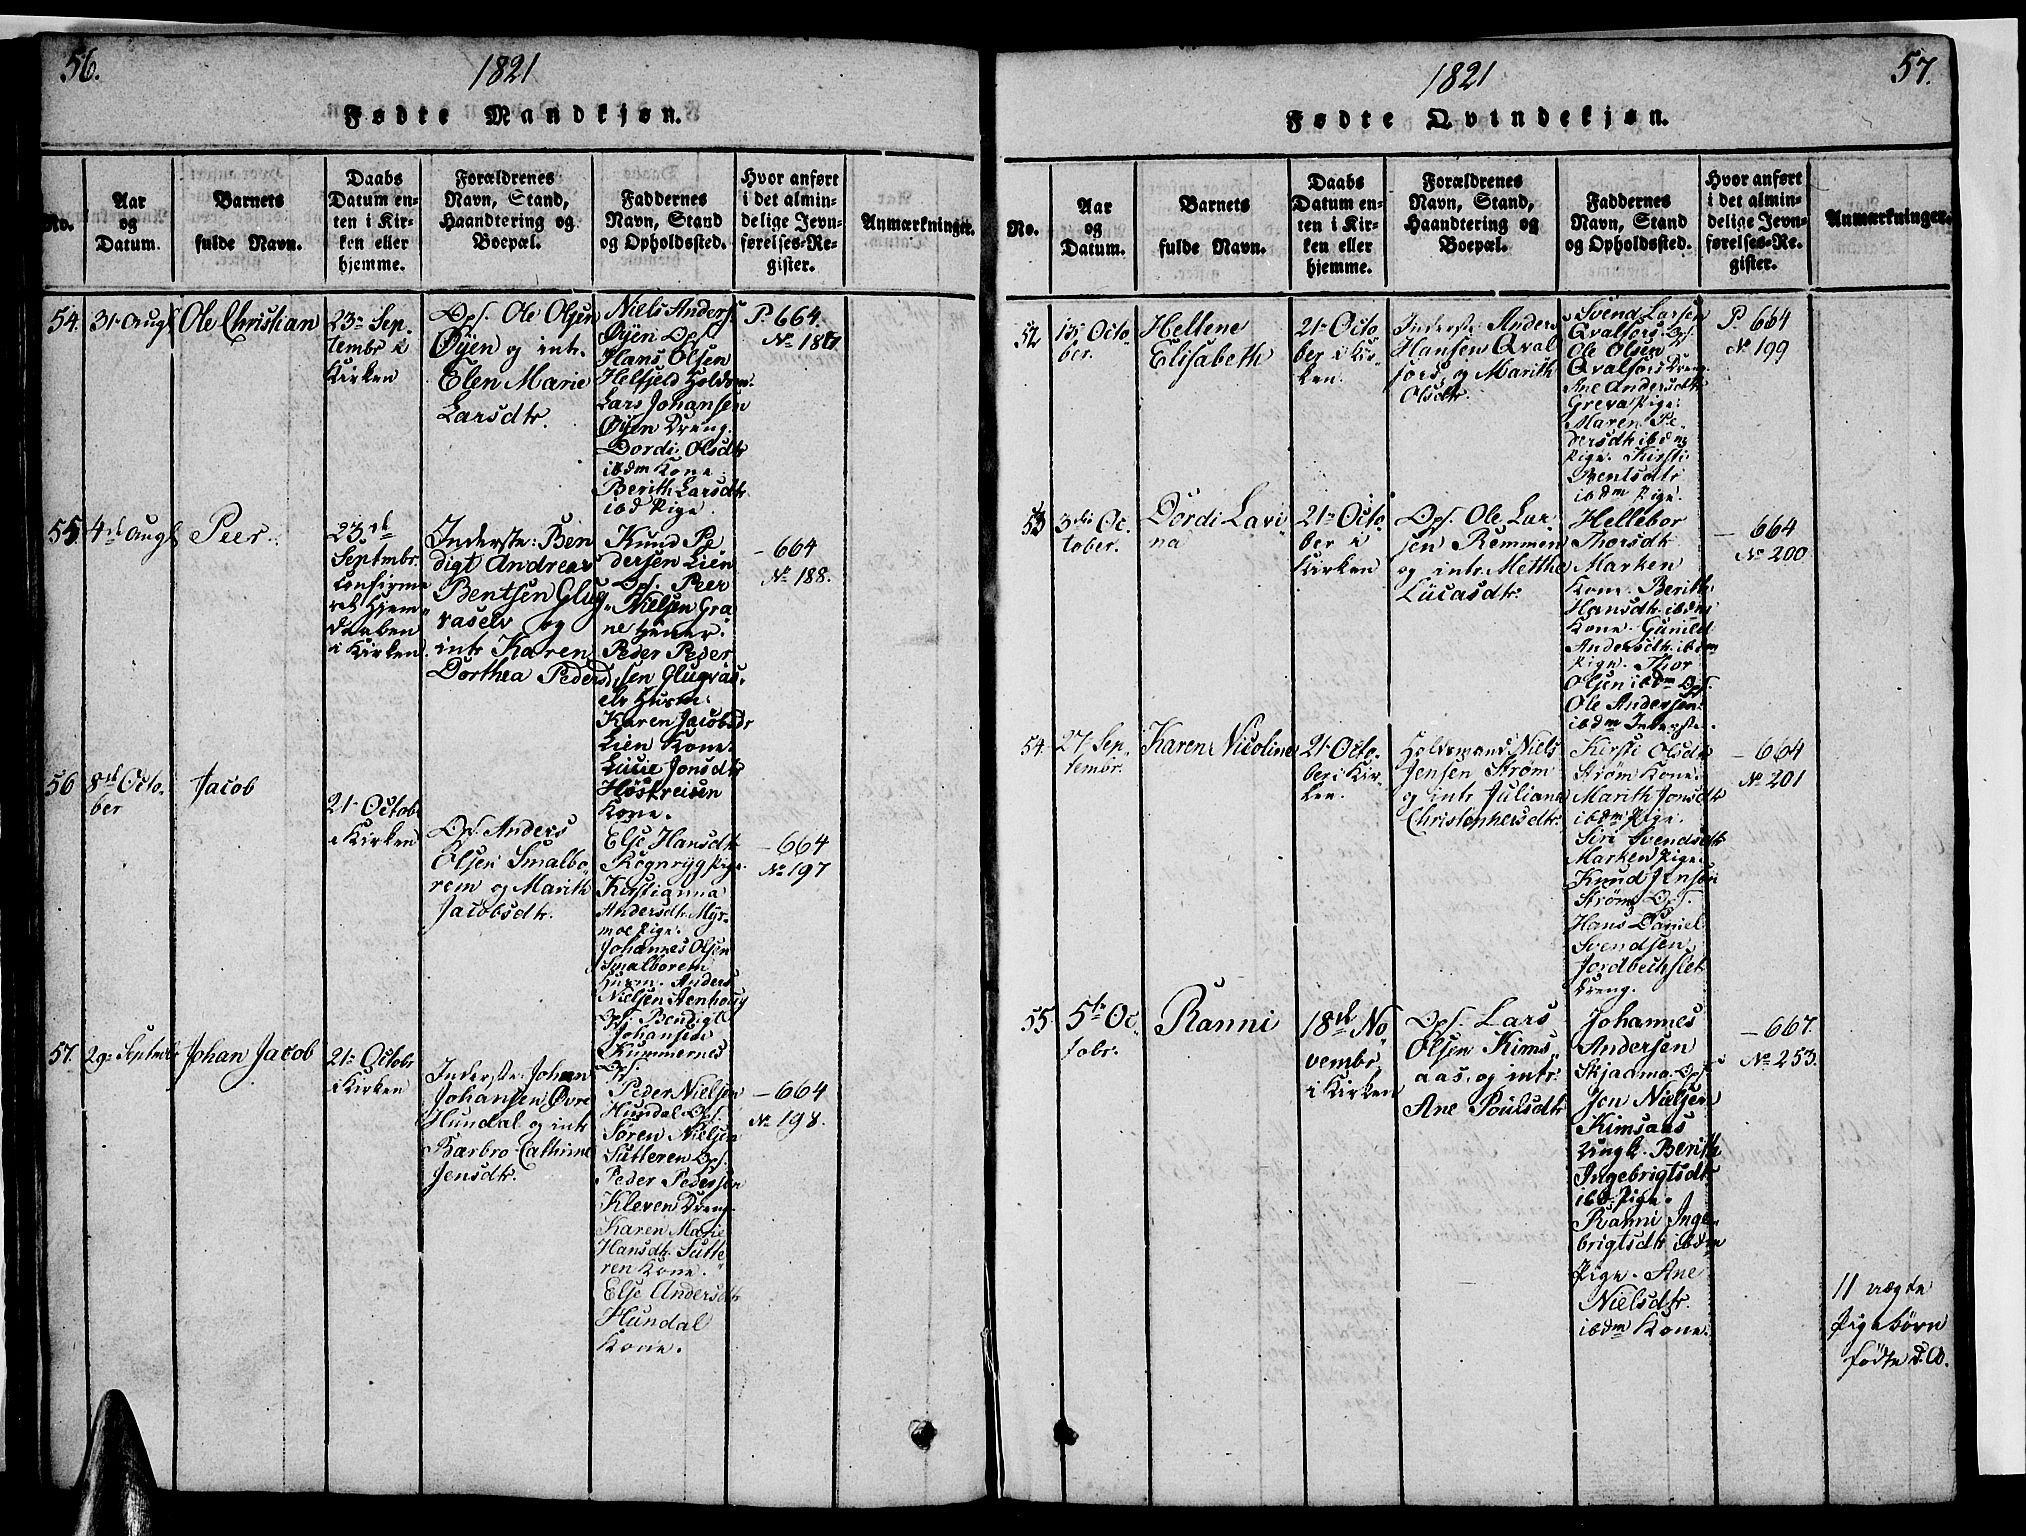 56.
1821
Fødte Mandkjøn.
No.
Aar
og
Datum.
Barnets
fulde Navn.
Daabs
Datum en-
ten i Kir-
ken eller
hjemme.
Forældrenes
Navn, Stand,
Haandtering og
Boepæl.
Faddernes
Navn, Stand
og Opholdssted.
Hvor anført
i det almin-
delige Jevn-
førelses-Re-
gister.
Anmærkninger.
54.
31. Augs
Ole Christian
23de Sep-
tembr i
Kirken
Ops. Ole Olsen
Øyen og intr.
Elen Marie
Larsdtr.
Niels Anders.
Øyen Ops.
Hans Olsen
Helfjeld Holdsm.
Lars Johansen
Øyen Dreng.
Dordi Olsdtr
ibdm Kone.
Berith Larsdtr
ibd Pige.
P. 664.
No 187
55.
4de Augs
Peer.
23de
Septmbr.
Confirme-
ret Hjem-
daaben
i Kirken.
Inderste: Ben
digt Andreas
Bentsen Glug
vaselv og
intr Karen
Dorthea Peders
Knud Pe
dersen Lien
Ops. Peer
Nielsen Gra
ne
Peder Peder
sen Glugvas-
elv Husm.
Karen Jacobsdr
Lien Kone.
Lucie Jonsdtr
Høskreisen
Kone.
- 664
No 188.
56
8de Octo-
ber
Jacob
21de Octobr
i Kirken
Ops. Anders
Olsen Smalbo-
rem og Marith
Jacobsdtr.
Else Hansdtr
Rognryg Pige.
Kistianna
Andersdtr Myr-
moe Pige.
Johannes Olsen
Smalborem
Husm. Anders
Nielsen Stenhoug
Ops. Bendigt
Johansen
Kummernes
Ops.
- 664
No 197
57.
29de Septmbr
Johan Jacob
21de Octobr
i Kirken
Inderste: Johan
Johansen Øvre
Hundal og intr
Barbro Cathrine
Jensdtr.
Peder Nielsen
Hundal Ops.
Søren Nielsen
Sutteren Ops.
Peder Pedersen
Kleven Dreng
Karen Marie
Hansdtr Sutte
ren Kone.
Else Andersdtr
Hundal
Kone.
- 664
No 198.
1821
57.
Fødte Qvindekjøn.
No.
Aar
og
Datum.
Barnets
fulde Navn.
Daabs
Datum en-
ten i Kir-
ken eller
hjemme.
Forældrenes
Navn, Stand,
Haandtering og
Boepæl.
Faddernes
Navn, Stand
og Opholdssted.
Hvor anført
i det almin-
delige Jevn-
førelses-Re-
gister.
Anmærkninger.
52
13de Octo
ber.
Hellene
Elisabeth
21de Octo
ber i Kir-
ken.
Inderste Anders
Hansen Qval
fors, og Marith
Olsdtr.
Svend Larsen
Qvalfors Ops.
Ole Olsen
Qvalfors Dreng
Ane Andersdtr
Greva Pige.
Maren Pe-
dersdtr ibdm
Pige. Kirsti
Bentsdtr
ibdm Pige.
P. 664
No 199
53
3die Oc-
tober.
Dordi Lavi
na
21de Octo
ber i
Kirken
Ops. Ole Lar-
sen Remmen
og intr. Metthe
Lucasdtr.
Hellebor
Thorsdtr
Marken
Kone. Berith
Hansdtr. ibdm
Kone. Gunild
Andersdtr ibdm
Pige. Thor
Olsen ibdm Ops.
Ole Andersen
ibdm Inderste.
- 664
No 200
54.
27 Sep-
tembr.
Karen Nicoline
21de Octo-
ber i Kir-
ken.
Holdsmand Niels
Jensen Strøm
og intr. Juliana
Christophersdtr.
Kirsti Olsdtr
Strøm Kone.
Marith Jonsdtr
ibdm Pige.
Siri Svendsdtr
Marken Pige.
Knud Jensen
Strøm Ops.
Hans Daniel
Svendsen
Jordbechslet
Dreng.
- 664
No 201
55
5te Oc-
tobr.
Ranni
18de No
vembr
i Kirken
Ops. Lars
Olsen Kims
aas, og intr.
Ane Poulsdtr
Johannes
Andersen
Skjaama Ops.
Jon Nielsen
Kimsaas
Ungk. Berith
Ingebrigtsdtr
ibd Pige.
Ranni Inge-
brigtsdtr ibdm
Pige. Ane
Nielsdtr.
ibdm Kone.
- 667.
No 253.
11 ægte
Pigebørn
fødte d.A.